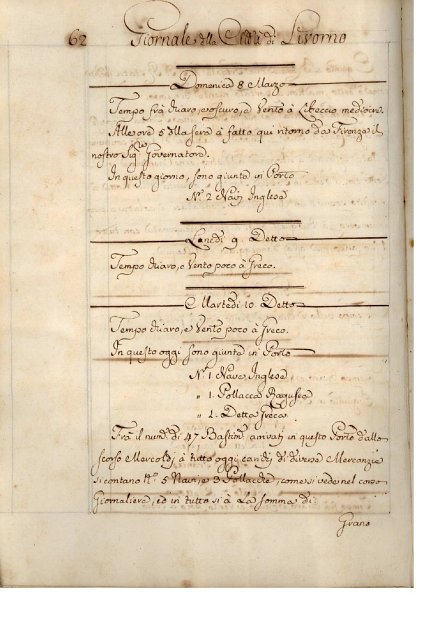 62 Giornale della Città di Livorno
Domenica 8 Marzo
Tempo frà chiaro, e oscuro, e Vento à Libeccio mediocre.
Alle ore 5 della sera à fatto qui ritorno da Firenze il
nostro Sig.re Governatore.
In questo giorno, sono giunte in Porto
N.º 2 Navi Inglese
Lunedì 9 Detto
Tempo chiaro, e Vento poco à Greco.
Martedì 10 Detto
Tempo chiaro, e Vento poco à Greco.
In questo oggi sono giunte in Porto
N.º 1 Nave Inglese
" 1. Pollacca Ragusea
" 2. Detta Greca
Frà il num. di 47 Bastim.ti arrivati in questo Porto dallo
scorso Mercoldì à tutto oggi di diverse Mercanzie
si contano N.º 5 Navi, e 3 Pollacche, come si vede nel corso
Giornaliere, ed in tutto si à La somma di:
Grano